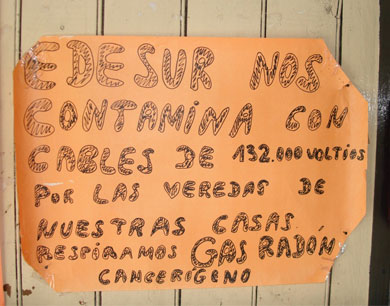 EDESUR NOS
CONTAMINA CON
CABLES DE 132.000 VOLTIOS
POR LAS VEREDAS DE
NUESTRAS CASAS
RESPIRAMOS GAS RADÓN
CANCERIGENO